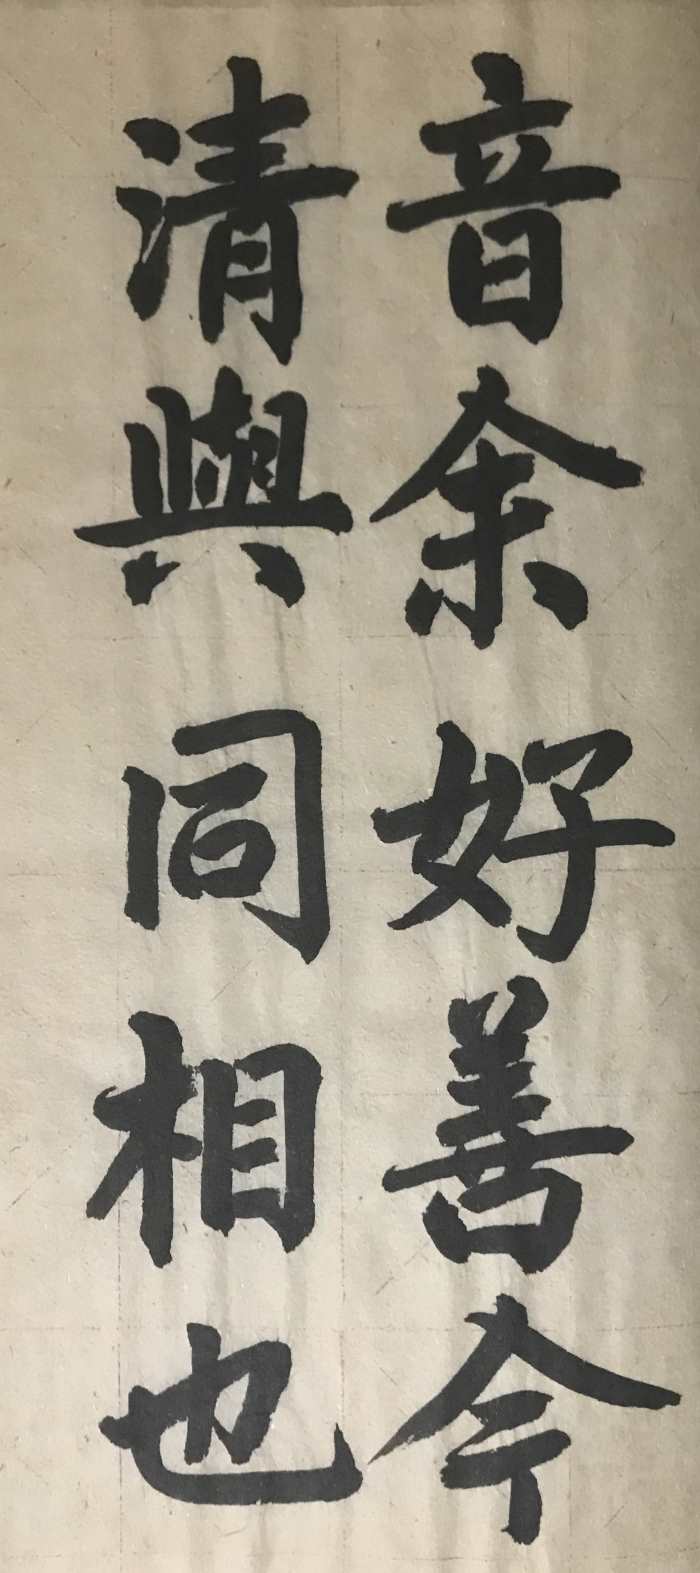 音余好善今
清與同相也